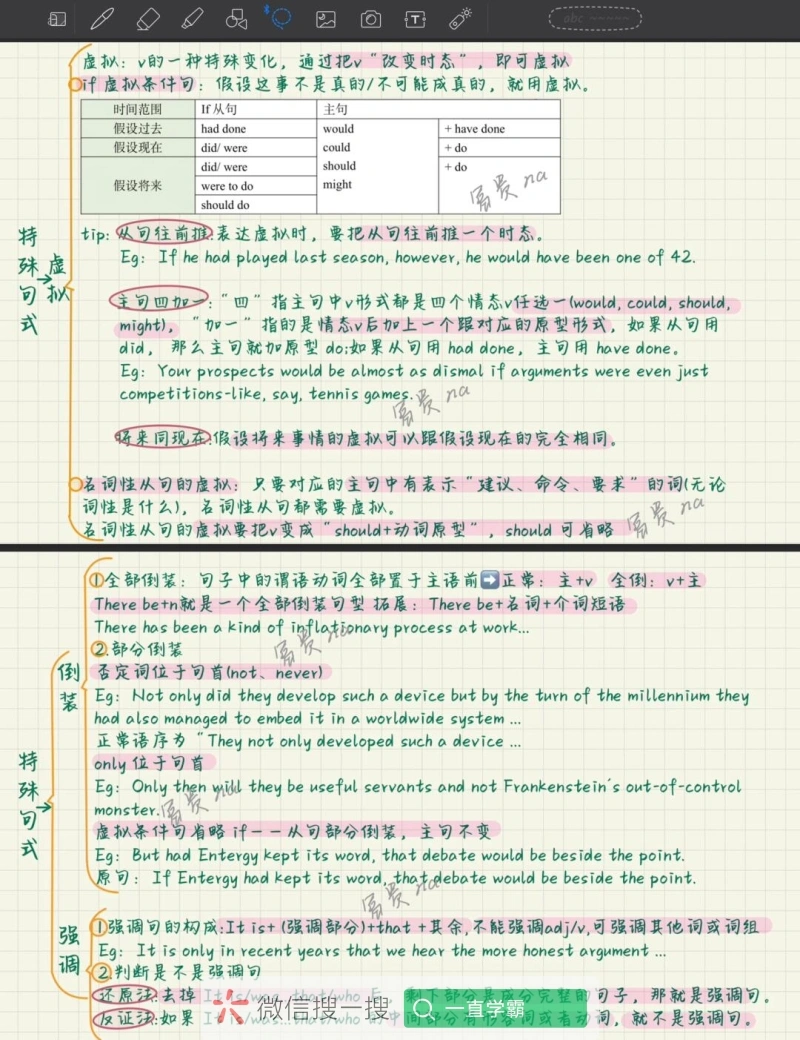 abc
虚拟：v的一种特殊变化，通过把v“改变时态”，即可虚拟
if 虚拟条件句：假设这事不是真的/不可能成真的，就用虚拟。
时间范围 If 从句 主句
假设过去 had done would + have done
假设现在 did/ were could + do
假设将来 did/ were should + do
were to do might
should do
富贵 na
特殊句式→虚拟
tip: 从句往前推:表达虚拟时，要把从句往前推一个时态。
Eg: If he had played last season, however, he would have been one of 42.
主句四加一:“四”指主句中v形式都是四个情态v任选一(would, could, should,
might)，“加一”指的是情态v后加上一个跟对应的原型形式，如果从句用
did，那么主句就加原型 do;如果从句用 had done，主句用 have done。
Eg: Your prospects would be almost as dismal if arguments were even just
competitions-like, say, tennis games.
富贵 na
将来同现在:假设将来事情的虚拟可以跟假设现在的完全相同。
名词性从句的虚拟：只要对应的主句中有表示“建议、命令、要求”的词(无论
词性是什么)，名词性从句都需要虚拟。
名词性从句的虚拟要把v变成“should+动词原型”，should 可省略
富贵 na
①全部倒装：句子中的谓语动词全部置于主语前➡正常：主+v 全倒：v+主
There be+n就是一个全部倒装句型 拓展：There be+名词+介词短语
There has been a kind of inflationary process at work...
②.部分倒装
富贵 na
倒装
否定词位于句首(not、never)
Eg: Not only did they develop such a device but by the turn of the millennium they
had also managed to embed it in a worldwide system ...
正常语序为“They not only developed such a device ...
only 位于句首
特殊句式→
Eg: Only then will they be useful servants and not Frankenstein's out-of-control
monster.
富贵 na
虚拟条件句省略 if－－从句部分倒装，主句不变
Eg: But had Entergy kept its word, that debate would be beside the point.
原句：If Entergy had kept its word, that debate would be beside the point.
富贵 na
强调
①强调句的构成:It is+ (强调部分)+that +其余,不能强调adj/v,可强调其他词或词组
Eg: It is only in recent years that we hear the more honest argument ...
②判断是不是强调句
还原法:去掉 It is/was...that/who 后，剩下部分是成分完整的句子，那就是强调句。
反证法:如果 It is/was...that/who 的中间部分有形容词或者动词，就不是强调句。
微信搜一搜 一直学霸